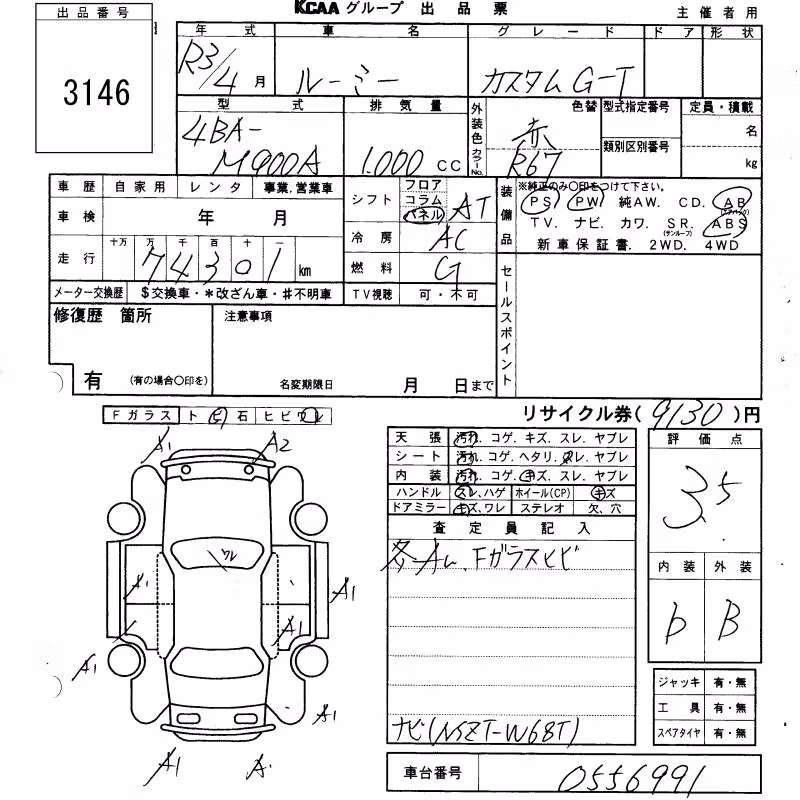 出品番号
3146
KCAA グループ 出品票
主催者用
年式 車名 グレード ドア 形状
R3/4月 ルーミー カスタムG-T
型式 排気量 外装色 カラーNo. 色替 型式指定番号 定員・積載
4BA-M900A 1.000 CC 赤 R67 類別区別番号 名 kg
車歴 自家用 レンタ 事業,営業車
車検 年 月
走行 十万 万 千 百 十 一
74301 km
メーター交換歴 $交換車・*改ざん車・#不明車
シフト フロア コラム パネル AT
冷房 AC
燃料 G
TV視聴 可・不可
装備品 ※純正のみ○印をつけて下さい。
PS PW 純AW. CD. AB (エアバック)
TV. ナビ. カワ. SR. (サンルーフ) ABS
新車保証書. 2WD. 4WD
セールスポイント
修復歴 箇所
有 (有の場合○印を)
注意事項
名変期限日 月 日まで
リサイクル券( 9130 )円
Fガラス トビ石 ヒビワレ
A1 A2
ワレ
A1 A1
A1
A1
A1
A1 A
天張 汚れ. コゲ. キズ. スレ. ヤブレ
シート 汚れ. コゲ. ヘタリ. スレ. ヤブレ
内装 汚れ. コゲ. キズ. スレ. ヤブレ
ハンドル スレ. ハゲ ホイール(CP) キズ
ドアミラー キズ. ワレ ステレオ 欠. 穴
査定員記入
各Aレ、Fガラスヒビ
ナビ(NSZT-W68T)
評価点
3.5
内装 外装
b B
ジャッキ 有・無
工具 有・無
スペアタイヤ 有・無
車台番号 0556991